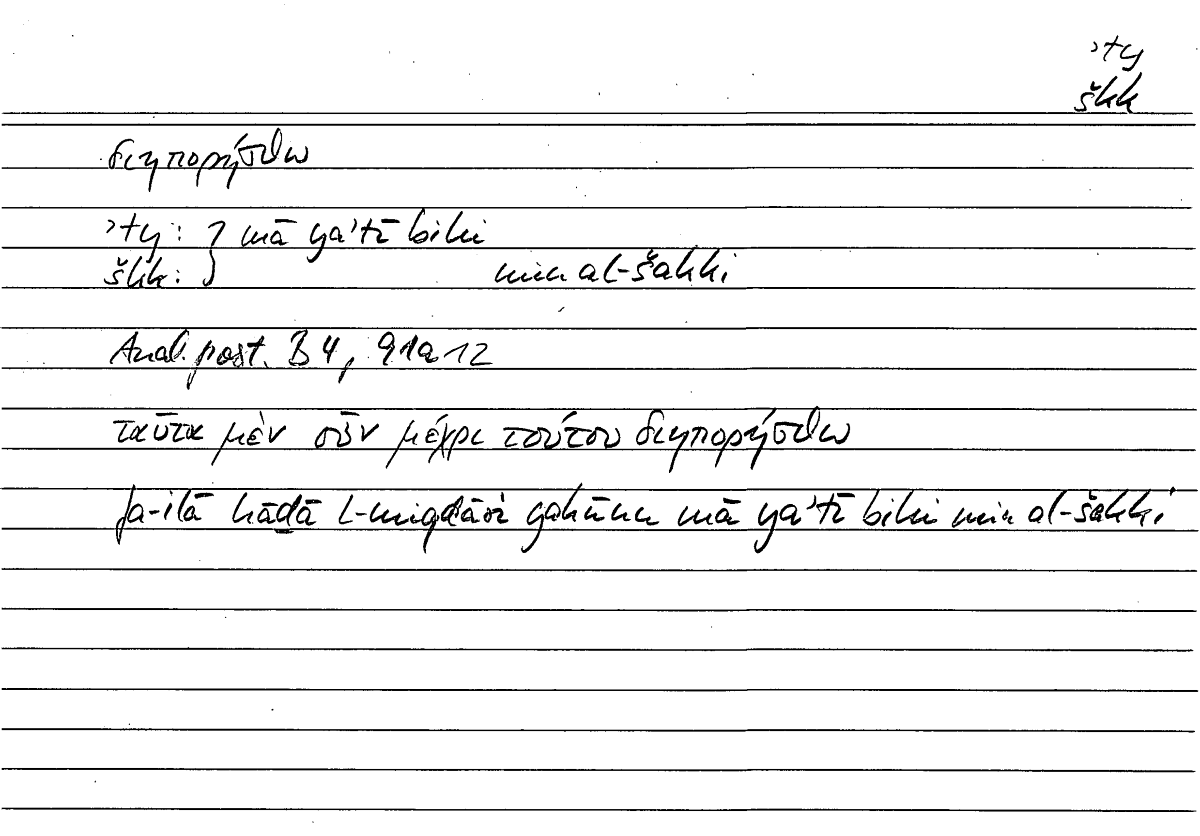 ʾty
škk
διηπορήσθω
ʾty : } mā yaʾtī bihi
škk : } min al-šakki
Anal. post. B 4, 91a12
ταῦτα μὲν οὖν μέχρι τούτου διηπορήσθω
fa-ilā hāḏā l-miqdāri yakūnu mā yaʾtī bihi min al-šakki